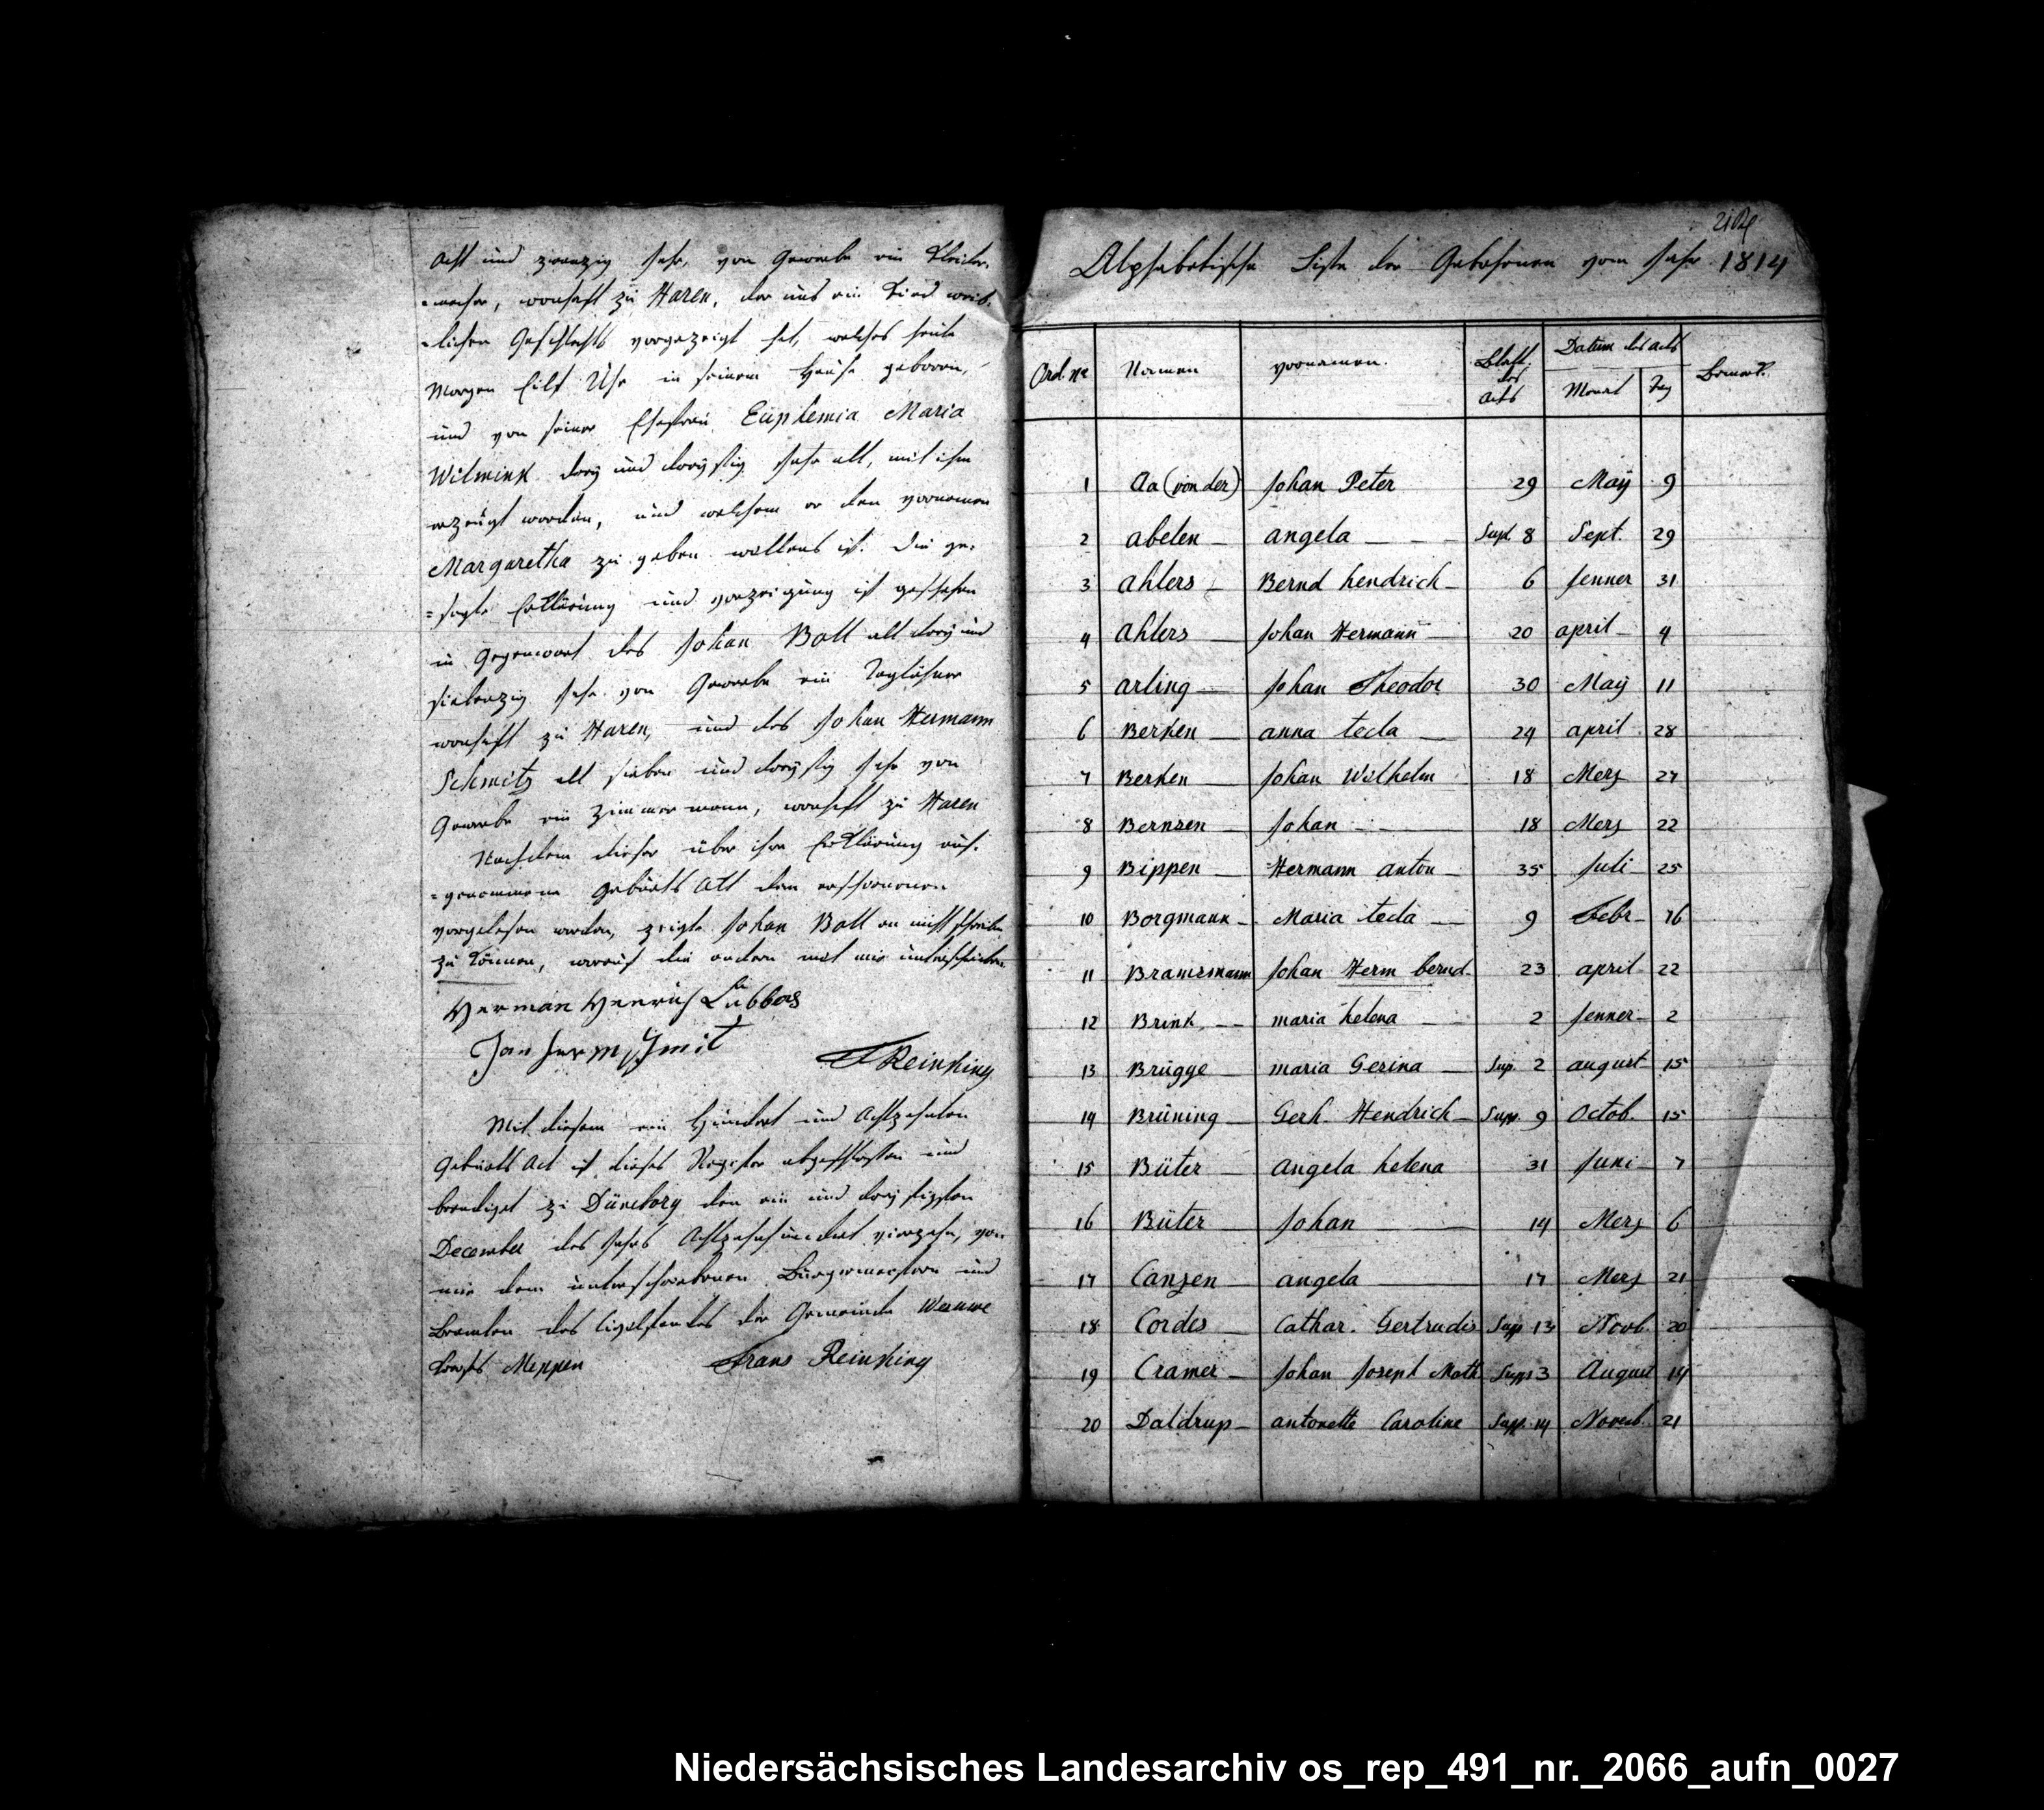 Acht und zwanzig Jahr, von Gewerbe ein Kleider-
=macher, wonhaft zu Haren, der uns ein Kind weib-
=lichen Geschlechts vorgezeigt hat, welches heute
Morgen Eilf Uhr in seinem Hause geboren,
und von seiner Ehefrau Euphemia Maria
Wilmink drey und dreyßig Jahr alt, mit ihm
erzeugt worden, und welchem er den Vornamen
Margaretha zu geben willens ist. Die ge-
=sagte Erklärung und Vorzeigung ist geschehen
in Gegenwart des Johan Boll alt drey und
siebenzig Jahr von Gewerbe ein Taglöhner
wonhaft zu Haren, und des Johan Hermann
Schmitz alt sieben und dreyßig Jahr von
Gewerbe ein Zimmermann, wonhaft zu Haren
Nachdem dieser über ihre Erklärung auf-
=genommene Geburts Akt den erschienenen
vorgelesen worden, zeigte Johan Boll an nicht schreiben
zu können, worauf die andern mit mir unterschrieben
Herman Henrich Lübbers
Jan herm Smit
F Reinking
Mit diesem ein Hundert und Achtzehnten
Geburts Act ist dieses Register abgeschlossen und
beendiget zu Düneburg den ein und dreyßigsten
December des Jahrs Achtzehnhundert vierzehn, von
mir dem unterschriebenen Bürgermeistern und
Beamten des Civilstandes der Gemeinde Wesuwe
Amts Meppen Frans Reinking
Alphabetische Liste der Gebohrnen vom Jahr 1814
Ord. Nr Namen Vornamen. Blatt des Acts Datum des Acts Monat Tag Bemerk.
1 Aa (von der) Johan Peter 29 Maÿ 9
2 Abelen Angela Supl. 8 Sept. 29
3 Ahlers Bernd Hendrich 6 Jenner 31
4 Ahlers Johan Hermann 20 April 4
5 Arling Johan Theodor 30 Maÿ 11
6 Berken Anna Tecla 24 April 28
7 Berken Johan Wilhelm 18 Merz 27
8 Bernsen Johan 18 Merz 22
9 Bippen Hermann Anton 35 Juli 25
10 Borgmann Maria Tecla 9 Febr 16
11 Bramsmann Johan Herm bernd 23 April 22
12 Brink Maria Helena 2 Jenner 2
13 Brügge Maria Gesina Sup. 2 August 15
14 Brüning Gerh. Hendrich Supp. 9 Octob. 15
15 Büter Angela Helena 31 Juni 7
16 Büter Johan 14 Merz 6
17 Canzen Angela 17 Merz 21
18 Cordes Cathar. Gertrudis Supp 13 Novb. 20
19 Cramer Johan Joseph Math Supp 3 August 19
20 Daldrup Antonette Caroline Supp. 14 Novemb. 21
Niedersächsisches Landesarchiv os_rep_491_nr._2066_aufn_0027